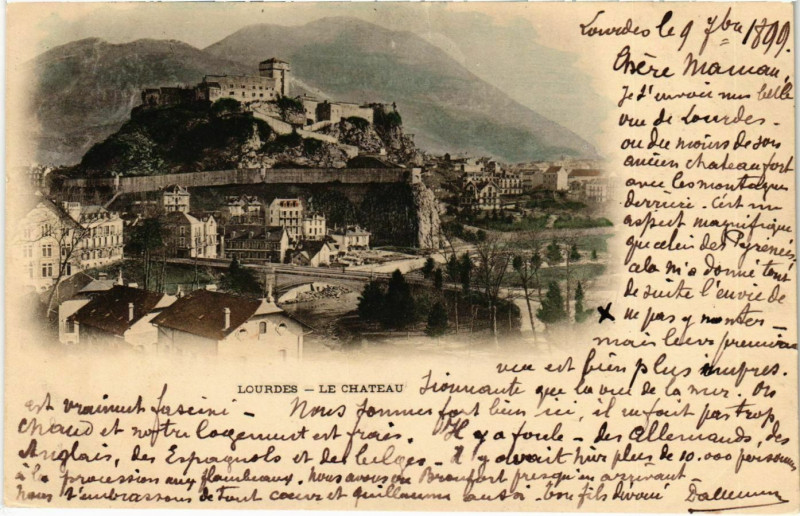 Lourdes le 9 7bre 1899.
Chère Maman,
Je t'envoie une belle
vue de Lourdes -
ou du moins de son
ancien chateau fort
avec les montagnes
derrière - C'est un
aspect magnifique
que celui des Pyrénées,
cela m'a donné tout
de suite l'envie de
ne pas y monter -
mais leur première
vue est bien plus impres.
LOURDES – LE CHATEAU
sionnante que la vue de la mer. On
est vraiment fasciné - Nous sommes fort bien ici, il ne fait pas trop
chaud et notre logement est frais. Il y a foule - des Allemands, des
Anglais, des Espagnols et des belges - Il y avait hier plus de 10.000 personnes
à la procession aux flambeaux. Nous avons vu presqu'en arrivant
Nous t'embrassons de tout coeur et Guillaume aussi - ton fils dévoué